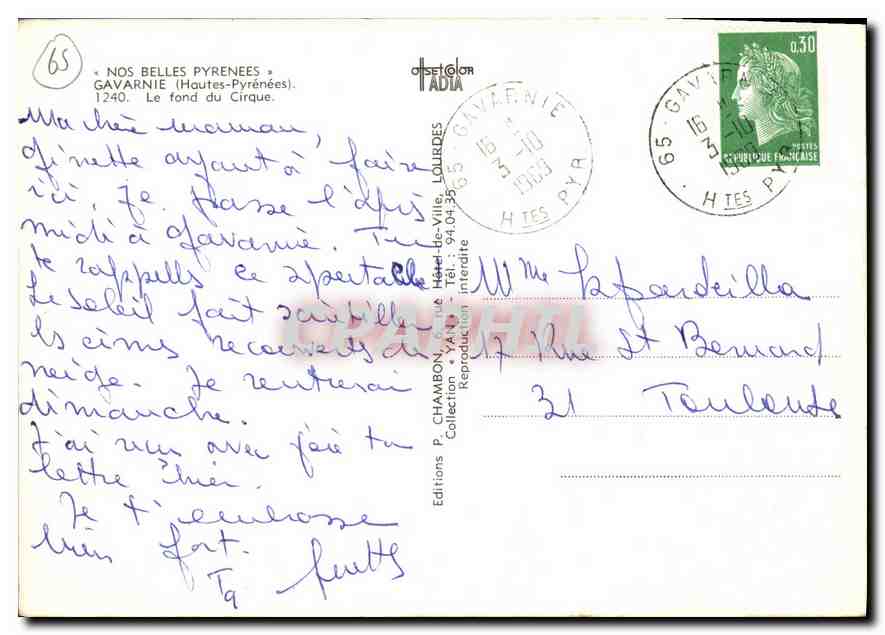 65
« NOS BELLES PYRENEES »
GAVARNIE (Hautes-Pyrénées).
1240. Le fond du Cirque.
OffsetColor
IADIA
Ma chère maman,
Ginette ayant à faire
ici, Je passe l'après
midi à Gavarnie. Tu
te rappelles ce spectacle
Le soleil fait scintiller
les cimes recouvertes de
neige. Je rentrerai
dimanche.
J'ai reçu avec joie ta
lettre hier.
Je t'embrasse
bien fort.
Ta
Editions P. CHAMBON, 6, rue Hôtel-de-Ville, LOURDES
Collection « YAN » - Tél. : 94.04.35
Reproduction interdite
65 - GAVARNIE
16 H
3 -10
1969
HTES PYR
65 - GAVARNIE
16 H
3 -10
1969
HTES PYR
0,30
POSTES
REPUBLIQUE FRANÇAISE
CPARHIL
Mme
17 Rue St Bernard
31 Toulouse